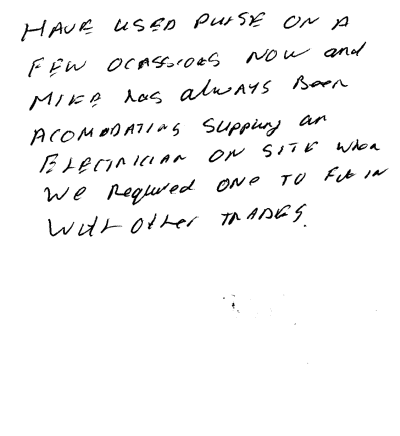 HAVE USED PULSE ON A
FEW OCASSIOES NOW and
MIKE has always Been
ACOMODATING Supplying an
ELECTRICIAN ON SITE when
We Required ONE TO Fit IN
With Other TRADES.